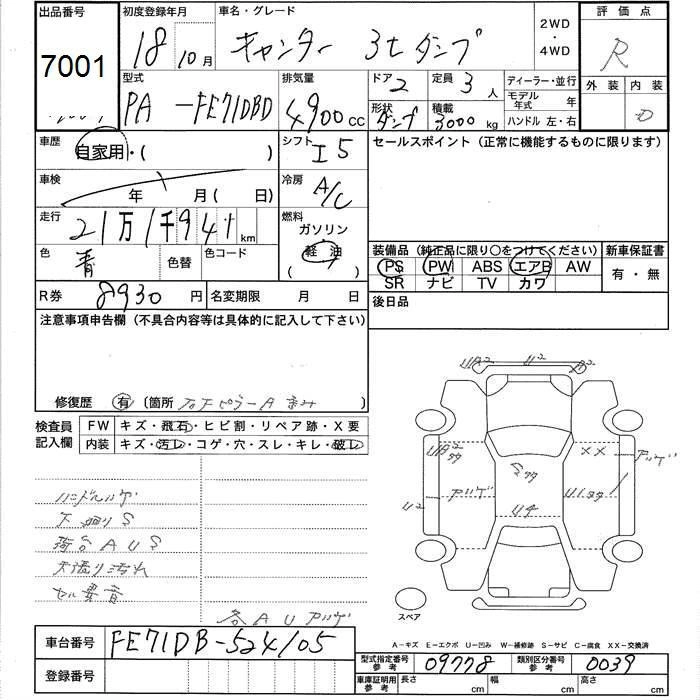 出品番号 初度登録年月 車名・グレード 2WD・4WD 評価点
7001 18 10月 キャンター 3tダンプ R
型式 排気量 ドア 2 定員 3人 ディーラー・並行 外装 内装
PA-FE71DBD 4900cc 形状 ダンプ 積載 3000kg モデル年式 年 D
ハンドル 左・右
車歴 自家用・( ) シフト I5 セールスポイント (正常に機能するものに限ります)
車検 年 月 ( 日) 冷房 A/C
走行 21万1千941km 燃料 ガソリン
色 青 色替 色コード 軽油 ( )
装備品 (純正品に限り〇をつけてください) 新車保証書
PS PW ABS エアB AW 有・無
SR ナビ TV カワ
R券 8930円 名変期限 月 日 後日品
注意事項申告欄 (不具合内容等は具体的に記入して下さい)
修復歴 有 〔箇所
検査員 FW キズ・飛石・ヒビ割・リペア跡・X要
記入欄 内装 キズ・汚レ・コゲ・穴・スレ・キレ・破レ
UA2 U2 A2
UA2 XX アゲ
U2 アゲ U1
U4
ハンドルハゲ
下廻りS
荷台AUS
セル異音
各AUアゲ
スペア
A-キズ E-エクボ U-凹み W-補修跡 S-サビ C-腐食 XX-交換済
車台番号 FE71DB-524105
型式指定番号 参考 09778 類別区分番号 参考 0039
登録番号
車庫証明用 参考 長さ cm 幅 cm 高さ cm